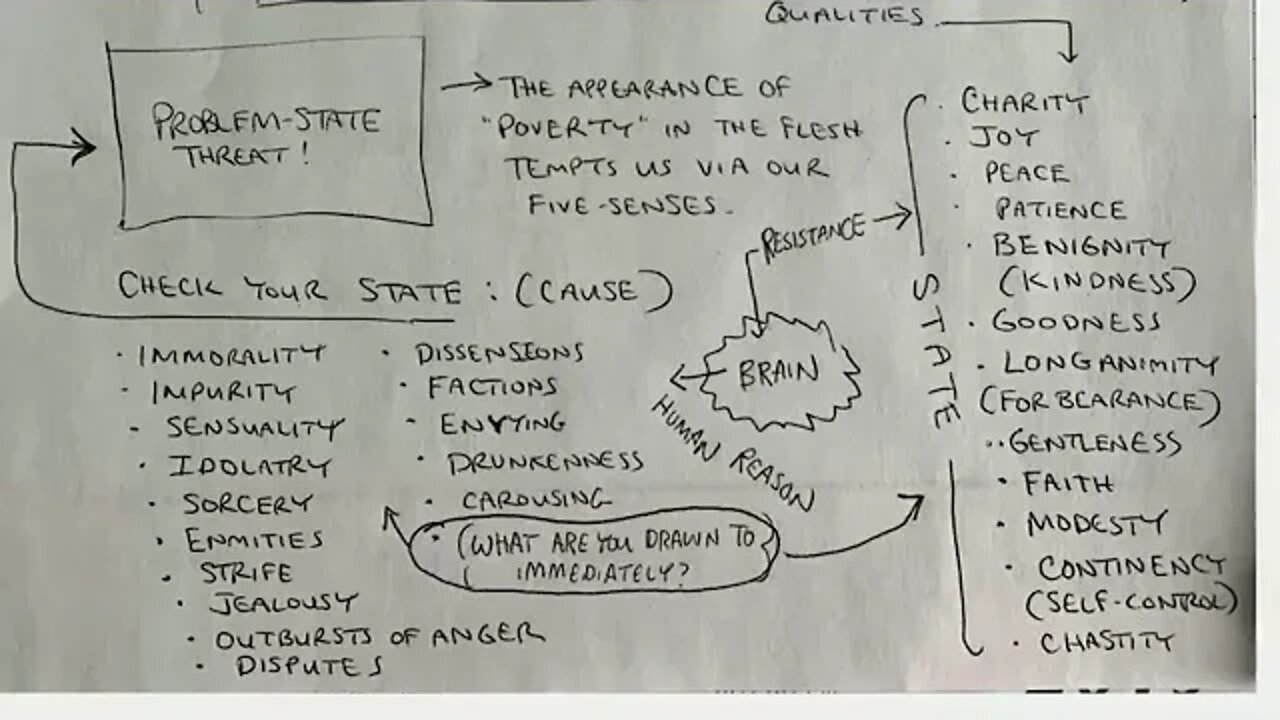 QUALITIES
PROBLEM-STATE
THREAT!
THE APPEARANCE OF
"POVERTY" IN THE FLESH
TEMPTS US VIA OUR
FIVE-SENSES.
CHECK YOUR STATE: (CAUSE)
• IMMORALITY
• IMPURITY
• SENSUALITY
• IDOLATRY
• SORCERY
• ENMITIES
• STRIFE
• JEALOUSY
• OUTBURSTS OF ANGER
• DISPUTES
• DISSENSIONS
• FACTIONS
• ENVYING
• DRUNKENNESS
• CAROUSING
• (WHAT ARE YOU DRAWN TO
IMMEDIATELY?
RESISTANCE
BRAIN
HUMAN REASON
STATE
• CHARITY
• JOY
• PEACE
• PATIENCE
• BENIGNITY
(KINDNESS)
• GOODNESS
• LONGANIMITY
(FORBEARANCE)
• GENTLENESS
• FAITH
• MODESTY
• CONTINENCY
(SELF-CONTROL)
• CHASTITY